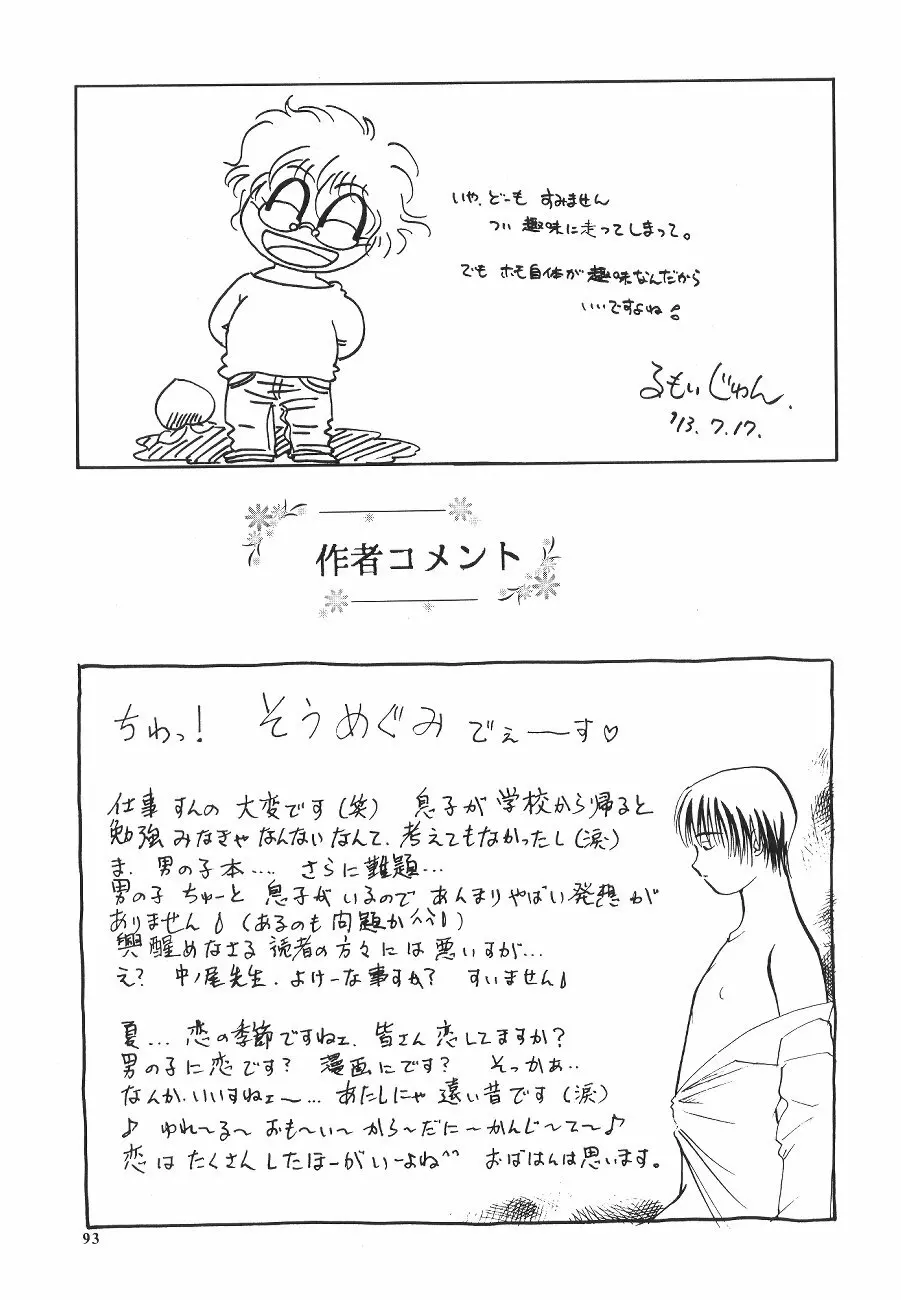 いや、どーも すみません
つい 趣味に走ってしまって。
でも ホモ自体が趣味なんだから
いいですよね!
るもいじゅん.
'13.7.17.
作者コメント
ちわっ! そうめぐみ でぇーーす♡
仕事 すんの 大変です(笑) 息子が学校から帰ると
勉強みなきゃなんないなんて、考えてもなかったし(涙)
ま、男の子本…. さらに難題…
男の子 ちゅーと 息子がいるので あんまりやばい発想が
ありません! (あるのも問題か^^!)
興醒めなさる読者の方々には悪いすが…
え? 中ノ尾先生、よけーな事すか? すいません!
夏… 恋の季節ですねェ、皆さん恋してますか?
男の子に恋です? 漫画にです? そっかぁ‥
なんか、いいすねェ〜… あたしにゃ遠い昔です(涙)
♪ ゆれ〜る〜 おも〜い〜 から〜だに〜かんじ〜て〜♪
恋は たくさん したほーがいーよね^^ おばはんは思います。
93